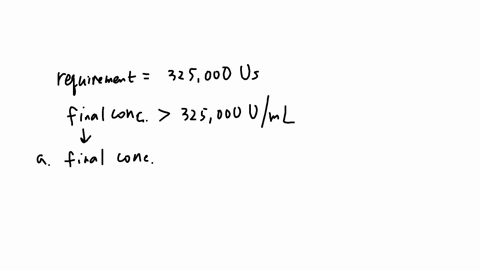 requirement = 325,000 Us
final conc. > 325,000 U/mL
↓
a. final conc.